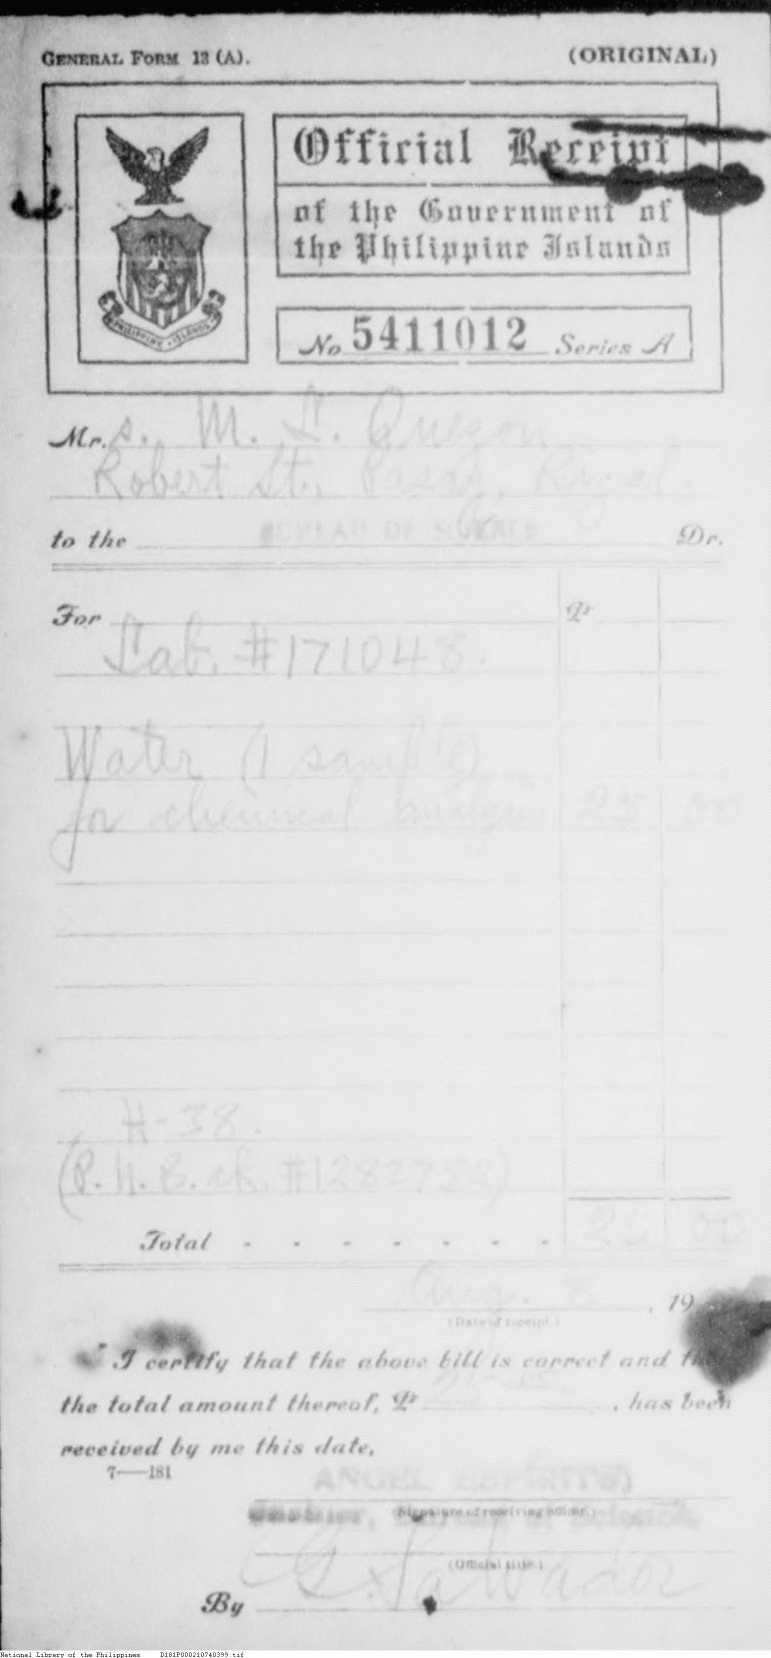 GENERAL FORM 13 (A).
(ORIGINAL)
PHILIPPINE ISLANDS
Official Receipt
of the Government of
the Philippine Islands
No 5411012 Series A
Mr. s. M. L. Quezon
Robert St., Pasay, Rizal.
to the BUREAU OF SCIENCE Dr.
For ₱
Lab. #171048.
Water (1 sample)
for chemical analysis 25 00
H-38.
(P. N. B. ch. #1282752)
Total - - - - - - - 25 00
Aug. 8, 19
(Date of receipt.)
I certify that the above bill is correct and that
the total amount thereof, ₱ , has been
received by me this date.
7—181
ANGEL ESPIRITU
(Signature of receiving officer.)
Cashier, Bureau of Science
(Official title.)
By Salvador
National Library of the Philippines D181P000210740399.tif